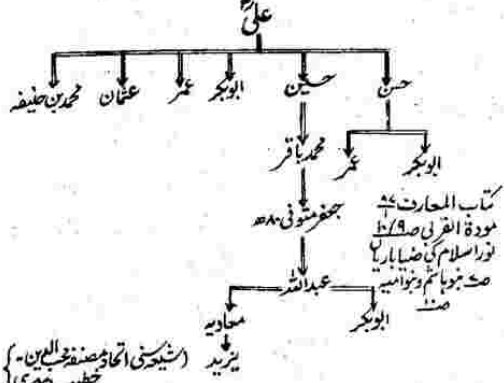 علیؓ
حسن
حسین
ابوبکر
عمر
عثمان
محمد بن حنیفہ
ابوبکر
عمر
محمد باقر
جعفر متوفی ۸۰ھ
عبداللہ
ابوبکر
معاویہ
یزید
کتاب المعارف ۹۷
مودۃ القربی صـ۹/۱۰
نور اسلام کی ضیا باریاں
بنو ہاشم و بنو امیہ
(شیعہ سنی اتحاد مصنفہ محب الدین
خطیب